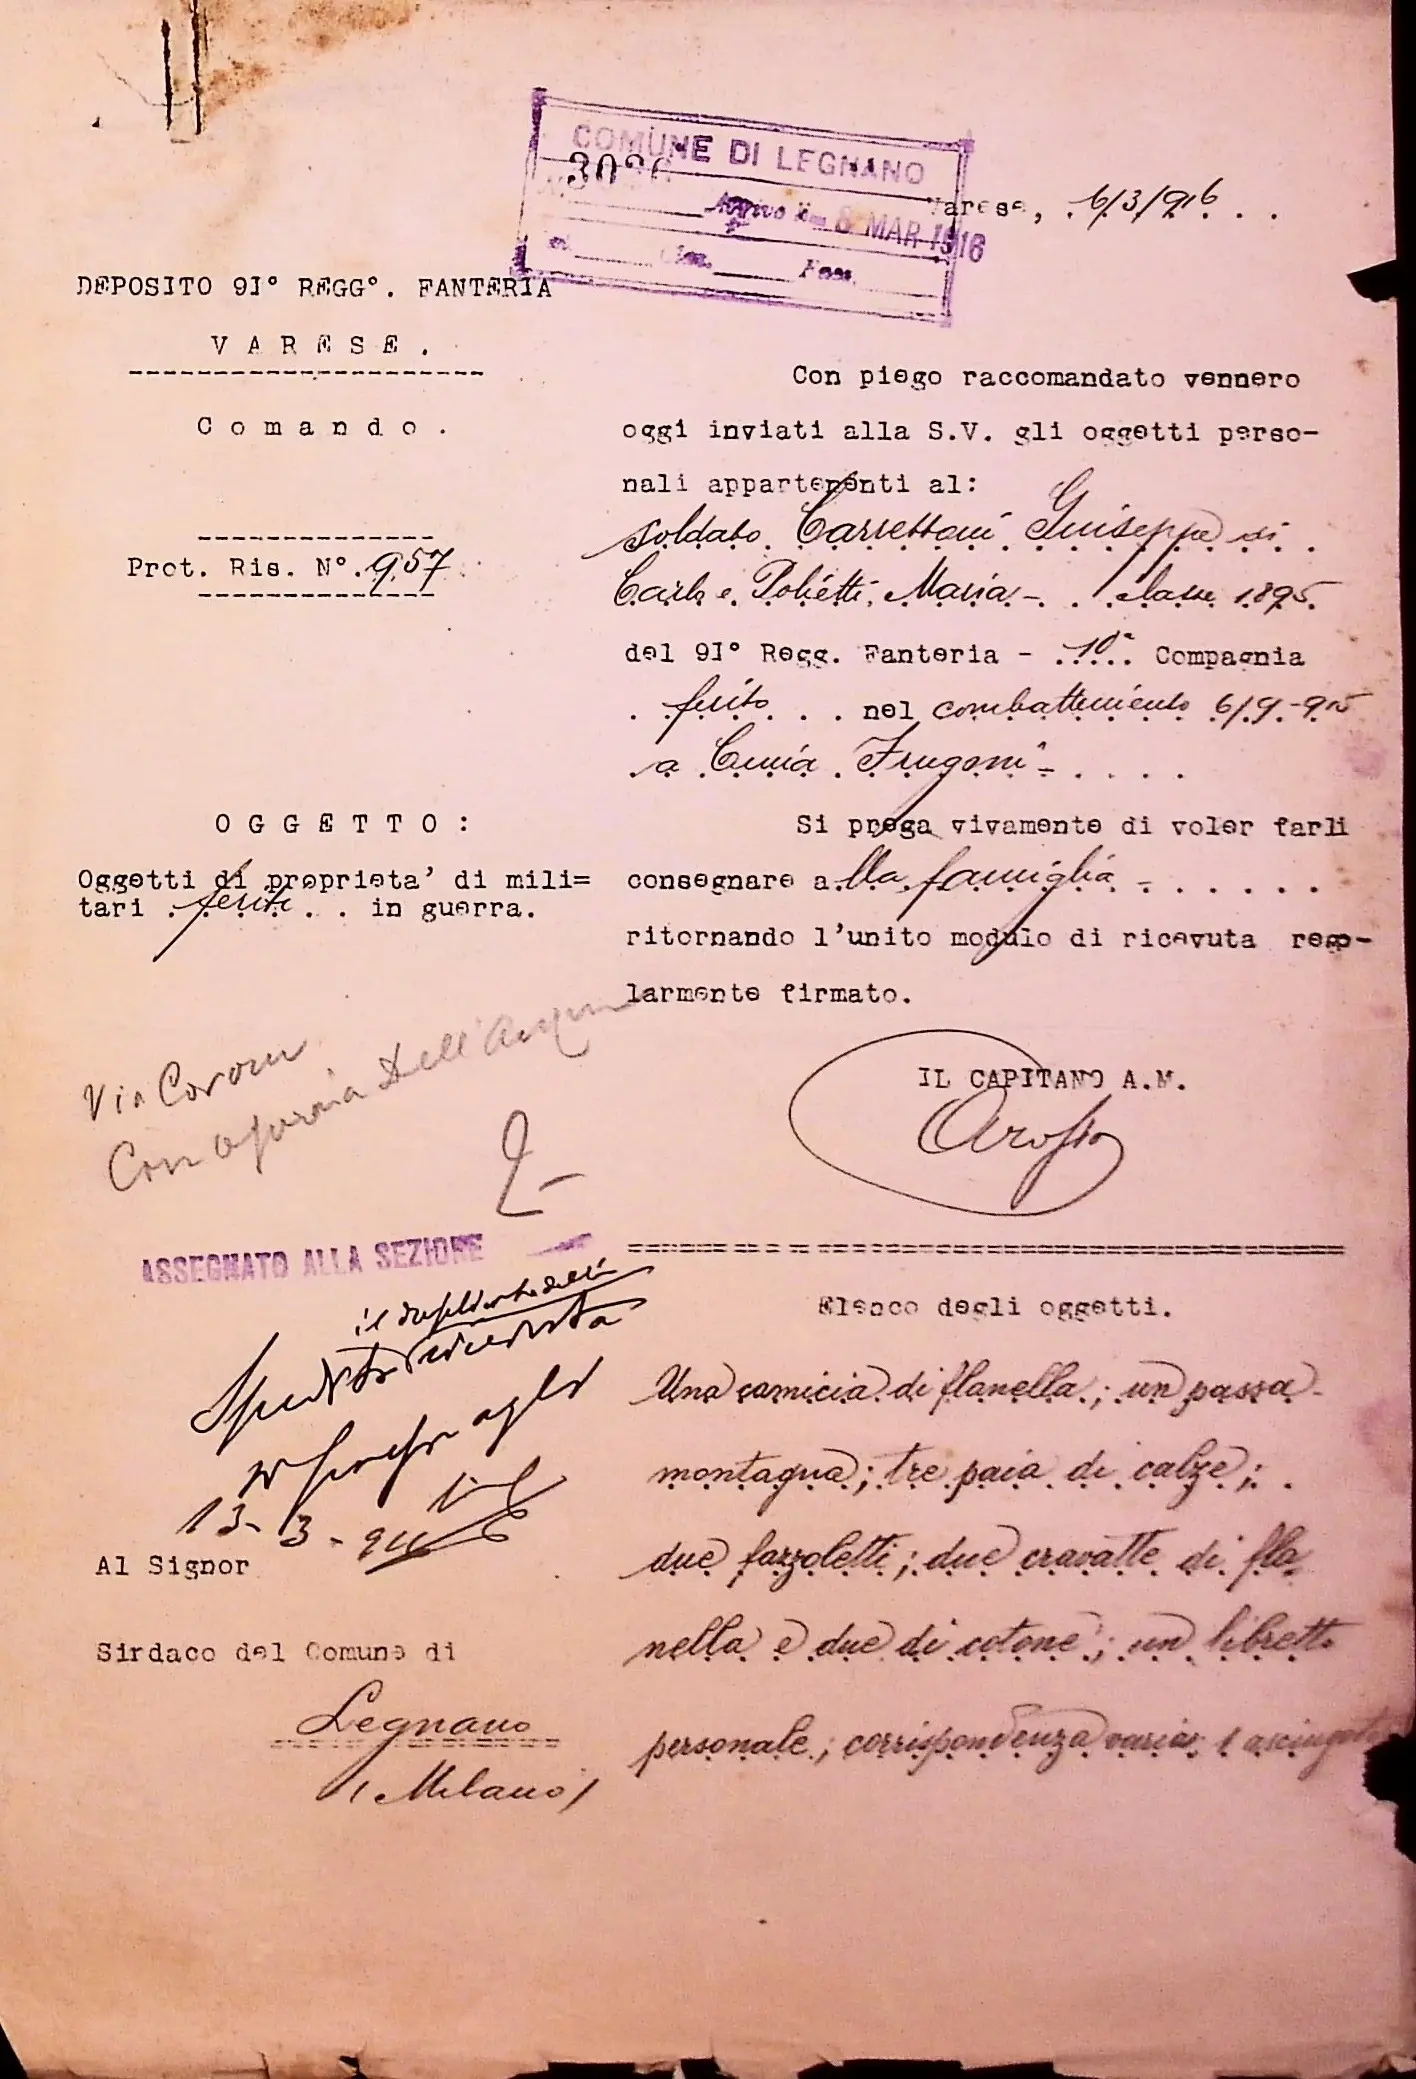 COMUNE DI LEGNANO
Arrivo il 8 MAR 1916
Varese, 6/3/916..
DEPOSITO 91° REGG°. FANTERIA
VARESE.
Comando.
Prot. Ris. N°. 957
OGGETTO:
Oggetti di proprieta' di mili=
tari . feriti . . in guerra.
Con piego raccomandato vennero
oggi inviati alla S.V. gli oggetti perso-
nali appartenenti al:
soldato Carrettoni Giuseppe di
Carlo e Maria - classe 1895
del 91° Regg. Fanteria - 10ª Compagnia
. ferito . . . nel combattimento 6/9-915
a Frugoni -
Si prega vivamente di voler farli
consegnare alla famiglia - . . . . . .
ritornando l'unito modulo di ricevuta rego-
larmente firmato.
IL CAPITANO A.M.
Via
Con Dell'
ASSEGNATO ALLA SEZIONE
ricevuta
13-3-916
Al Signor
Sindaco del Comune di
Legnano
(Milano)
Elenco degli oggetti.
Una camicia di flanella; un passa-
montagna; tre paia di calze;
due fazzoletti; due cravatte di fla
nella e due di cotone; un libretto
personale; corrispondenza varia 1